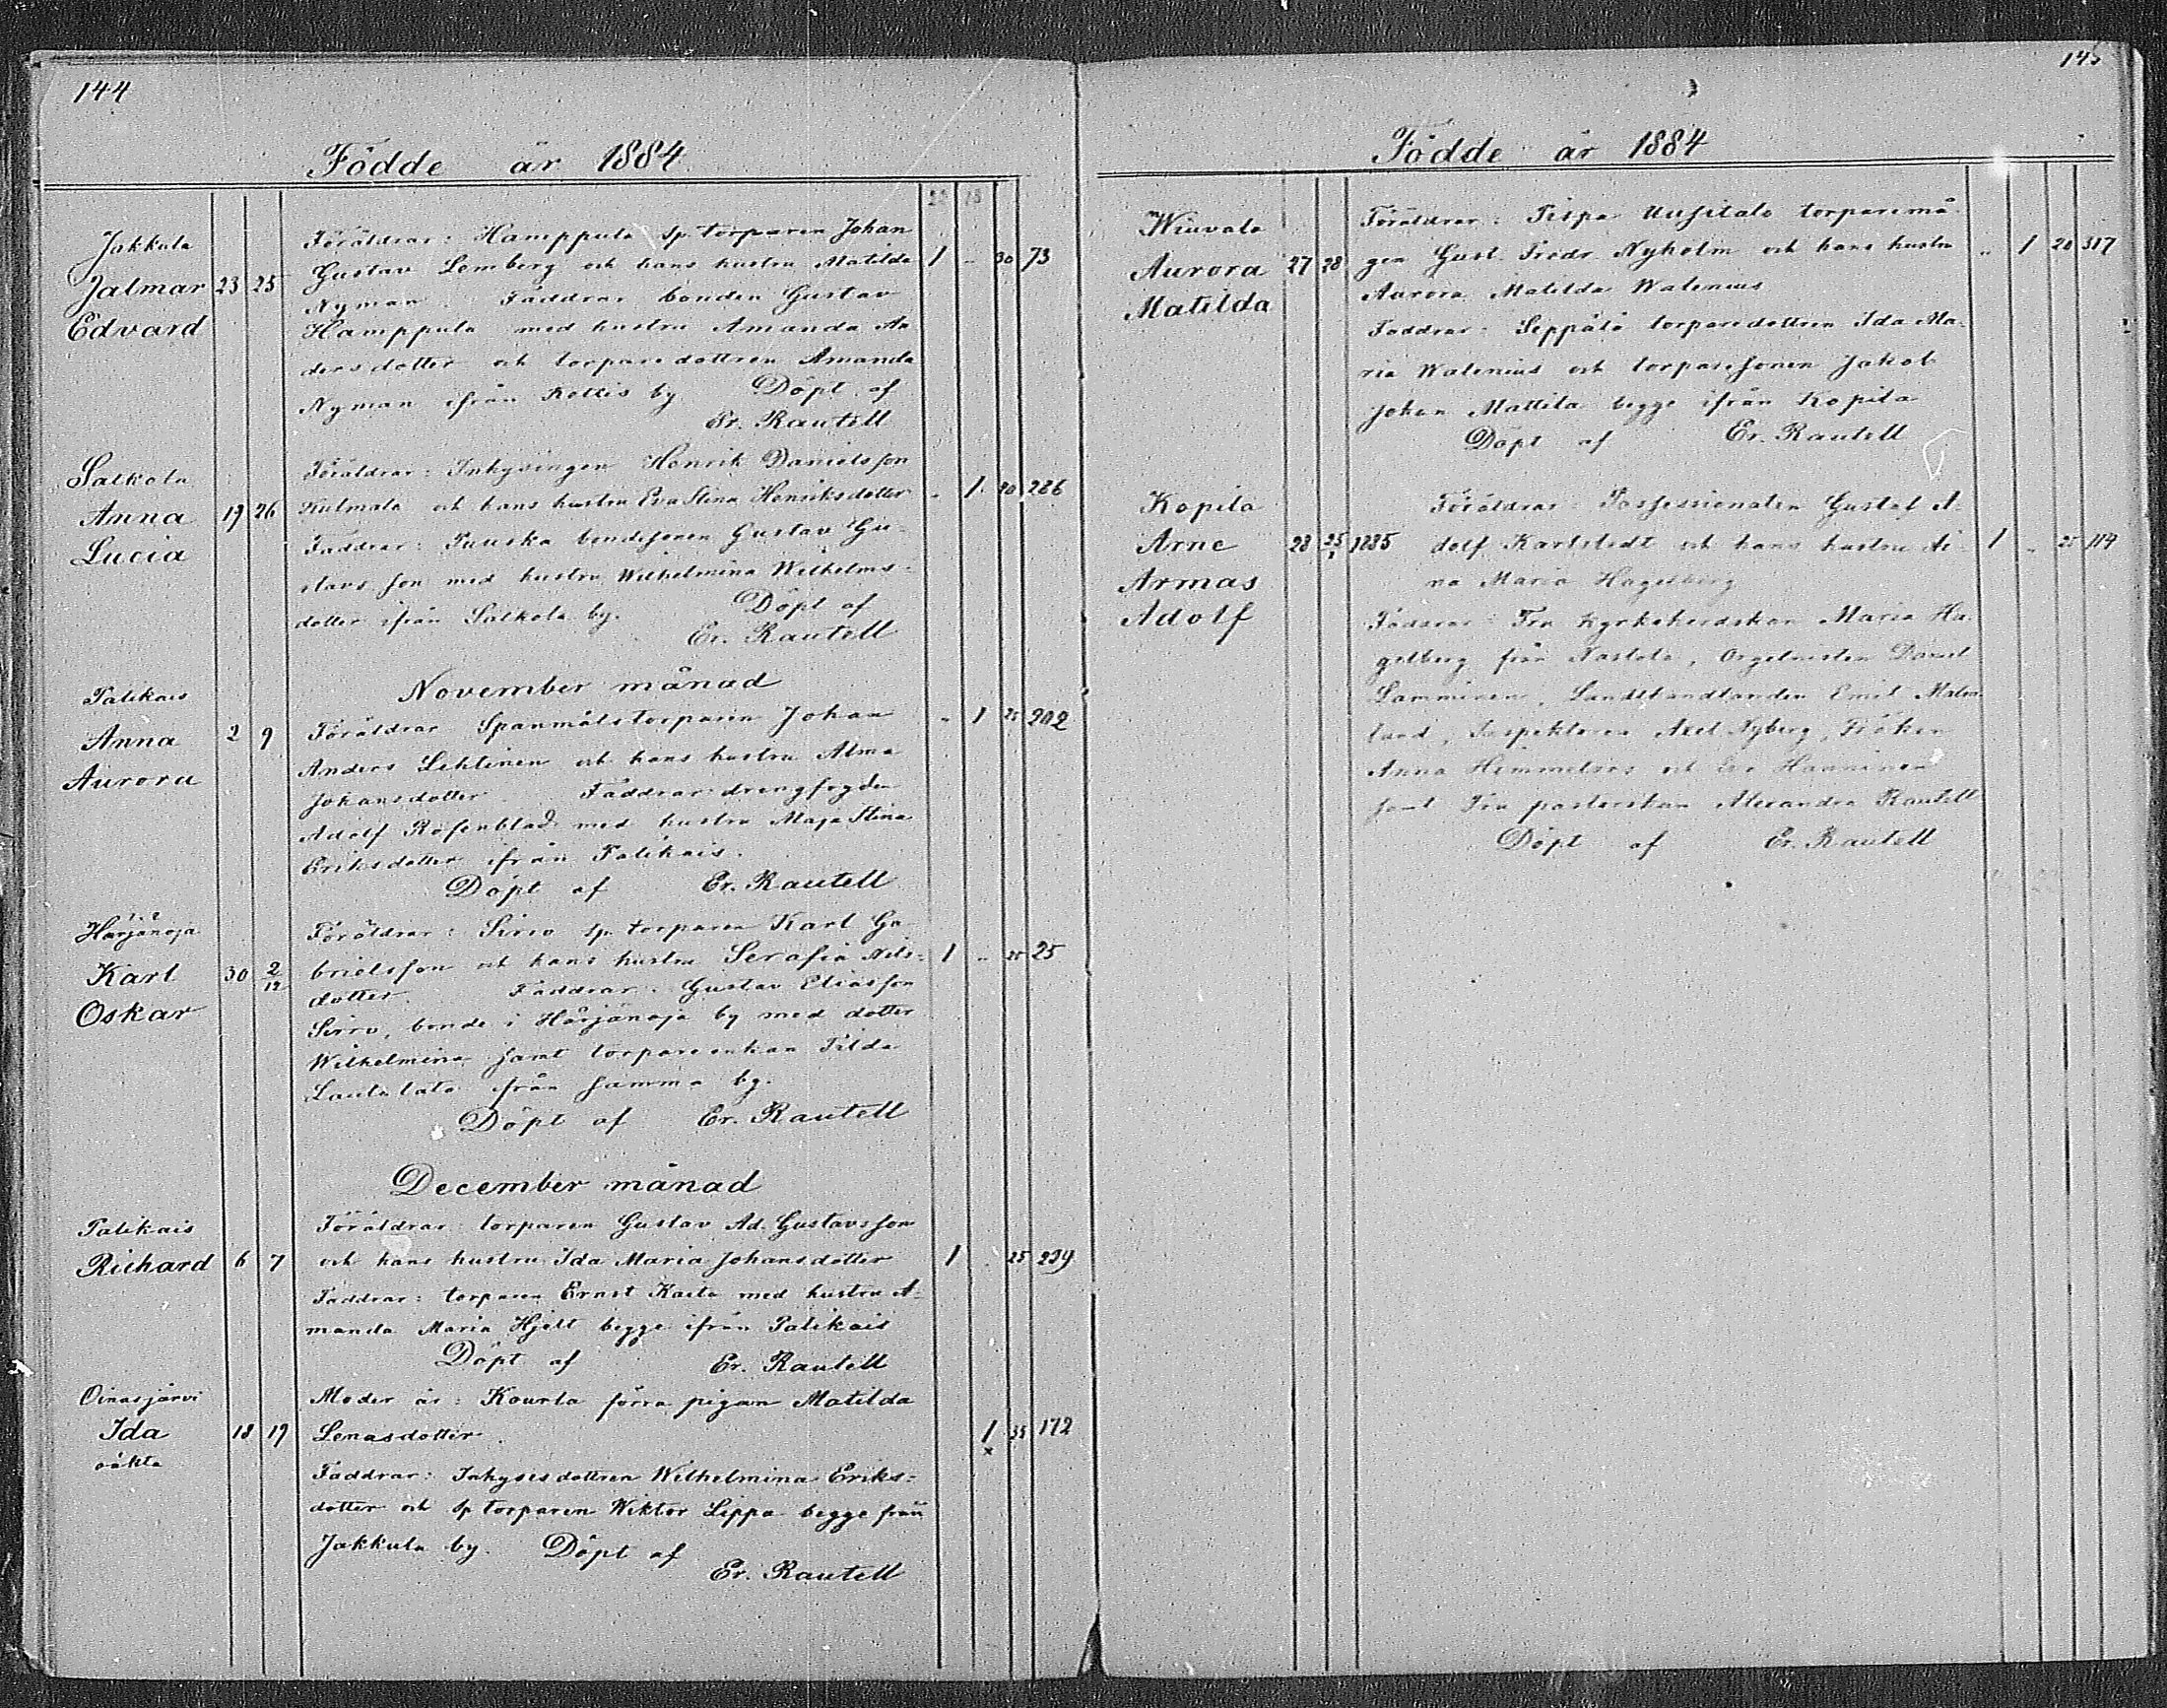 144
Födde år 1884
23 18
Jakkula
Jalmar 23 25
Edvard
Föräldrar: Hamppula sp. torparen Johan
Gustav Lemberg och hans hustru Matilda 1 - 30 73
Nyman. Faddrar bonden Gustav
Hamppula med hustru Amanda An
dersdotter och torparedottren Amanda
Nyman ifrån Kottis by Döpt af
Er. Rautell
Salkola
Anna 19 26
Lucia
Föräldrar: Inhysingen Henrik Danielsson
Kulmala och hans hustru Eva Stina Henriksdotter " 1 20 286
Faddrar: Puuska bondesonen Gustav Gu-
stavsson med hustru Wilhelmina Wilhelms-
dotter ifrån Salkola by. Döpt af
Er. Rautell
November månad
Palikais
Anna 2 9
Aurora
Föräldrar Spanmålstorparen Johan " 1 25 202
Anders Lehtinen och hans hustru Alma
Johansdotter Faddrar drengfogden
Adolf Rosenblad med hustru Maja Stina
Eriksdotter ifrån Palikais.
Döpt af Er. Rautell
Härjänoja
Karl 30 2/12
Oskar
Föräldrar: Sirro sp. torparen Karl Ga-
brielsson och hans hustru Serafia Nils- 1 " 25 25
dotter. Faddrar: Gustav Eliasson
Sirro, bonde i Härjänoja by med dotter
Wilhelmina samt torpareenkan Tilda
Lautalata från samma by.
Döpt af Er. Rautell
December månad
Palikais
Richard 6 7
Föräldrar: torparen Gustav Ad. Gustavsson
och hans hustru Ida Maria Johansdotter 1 25 239
Faddrar: torparen Ernst Kaila med hustru A-
manda Maria Hjelt begge ifrån Palikais
Döpt af Er. Rautell
Oinasjärvi
Ida 18 19
oäkta
Moder är: Kourla förra pigan Matilda
Lenasdotter. 1 x 35 172
Faddrar: Inhysesdottren Wilhelmina Eriks-
dotter och sp torparen Wiktor Lippa begge från
Jakkula by. Döpt af
Er. Rautell
145
Födde år 1884
Wiuvala
Aurora 27 28
Matilda
Föräldrar: Pispa Uusitalo torparemå-
gen Gust. Fredr. Nyholm och hans hustru " 1 20 317
Aurora Matilda Walenius
Faddrar: Seppälä torparedottren Ida Ma-
ria Walenius och torparesonen Jakob
Johan Mattila begge ifrån Kopila
Döpt af Er. Rautell
Kopila
Arne 28 25/1 1885
Armas
Adolf
Föräldrar: Possessionaten Gustaf A-
dolf Karlstedt och hans hustru Ai- 1 " 25 119
na Maria Hagelberg
Faddrar: Fru Kyrkoherdskan Maria Ha-
gelberg från Nastola, Orgelnisten Daniel
Lamminen, Landthandlanden Emil Malm
lund, Inspektoren Axel Nyberg, Fröken
Anna Himmelroos och Eva Hanninen
samt Fru pastorskan Alexandra Rautell
Döpt af Er. Rautell